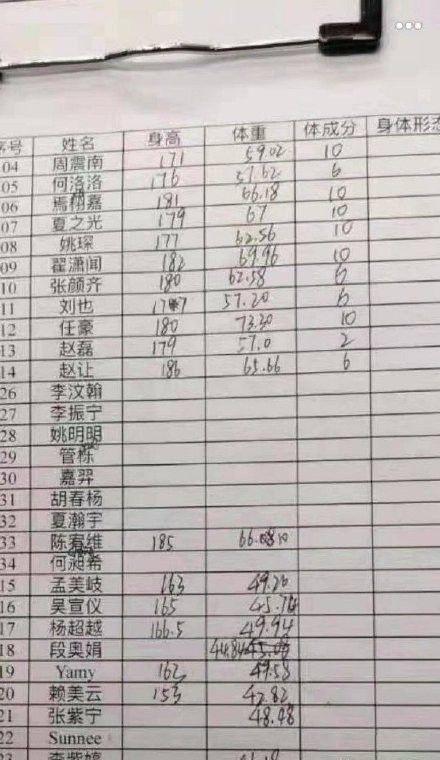 序号 姓名 身高 体重 体成分 身体形态
04 周震南 171 59.02 10
05 何洛洛 176 57.62 6
06 焉栩嘉 181 66.18 10
07 夏之光 179 67 10
08 姚琛 177 62.56 10
09 翟潇闻 182 69.96 10
10 张颜齐 180 62.58 6
11 刘也 57.20 6
12 任豪 180 73.30 10
13 赵磊 179 57.0 2
14 赵让 186 65.66 6
26 李汶翰
27 李振宁
28 姚明明
29 管栎
30 嘉羿
31 胡春杨
32 夏瀚宇
33 陈宥维 185
34 何昶希
15 孟美岐 163 49.20
16 吴宣仪 165
17 杨超越 166.5 49.94
18 段奥娟 44.84
19 Yamy 162 49.58
20 赖美云 153 42.82
21 张紫宁 48.48
22 Sunnee
23 李紫婷